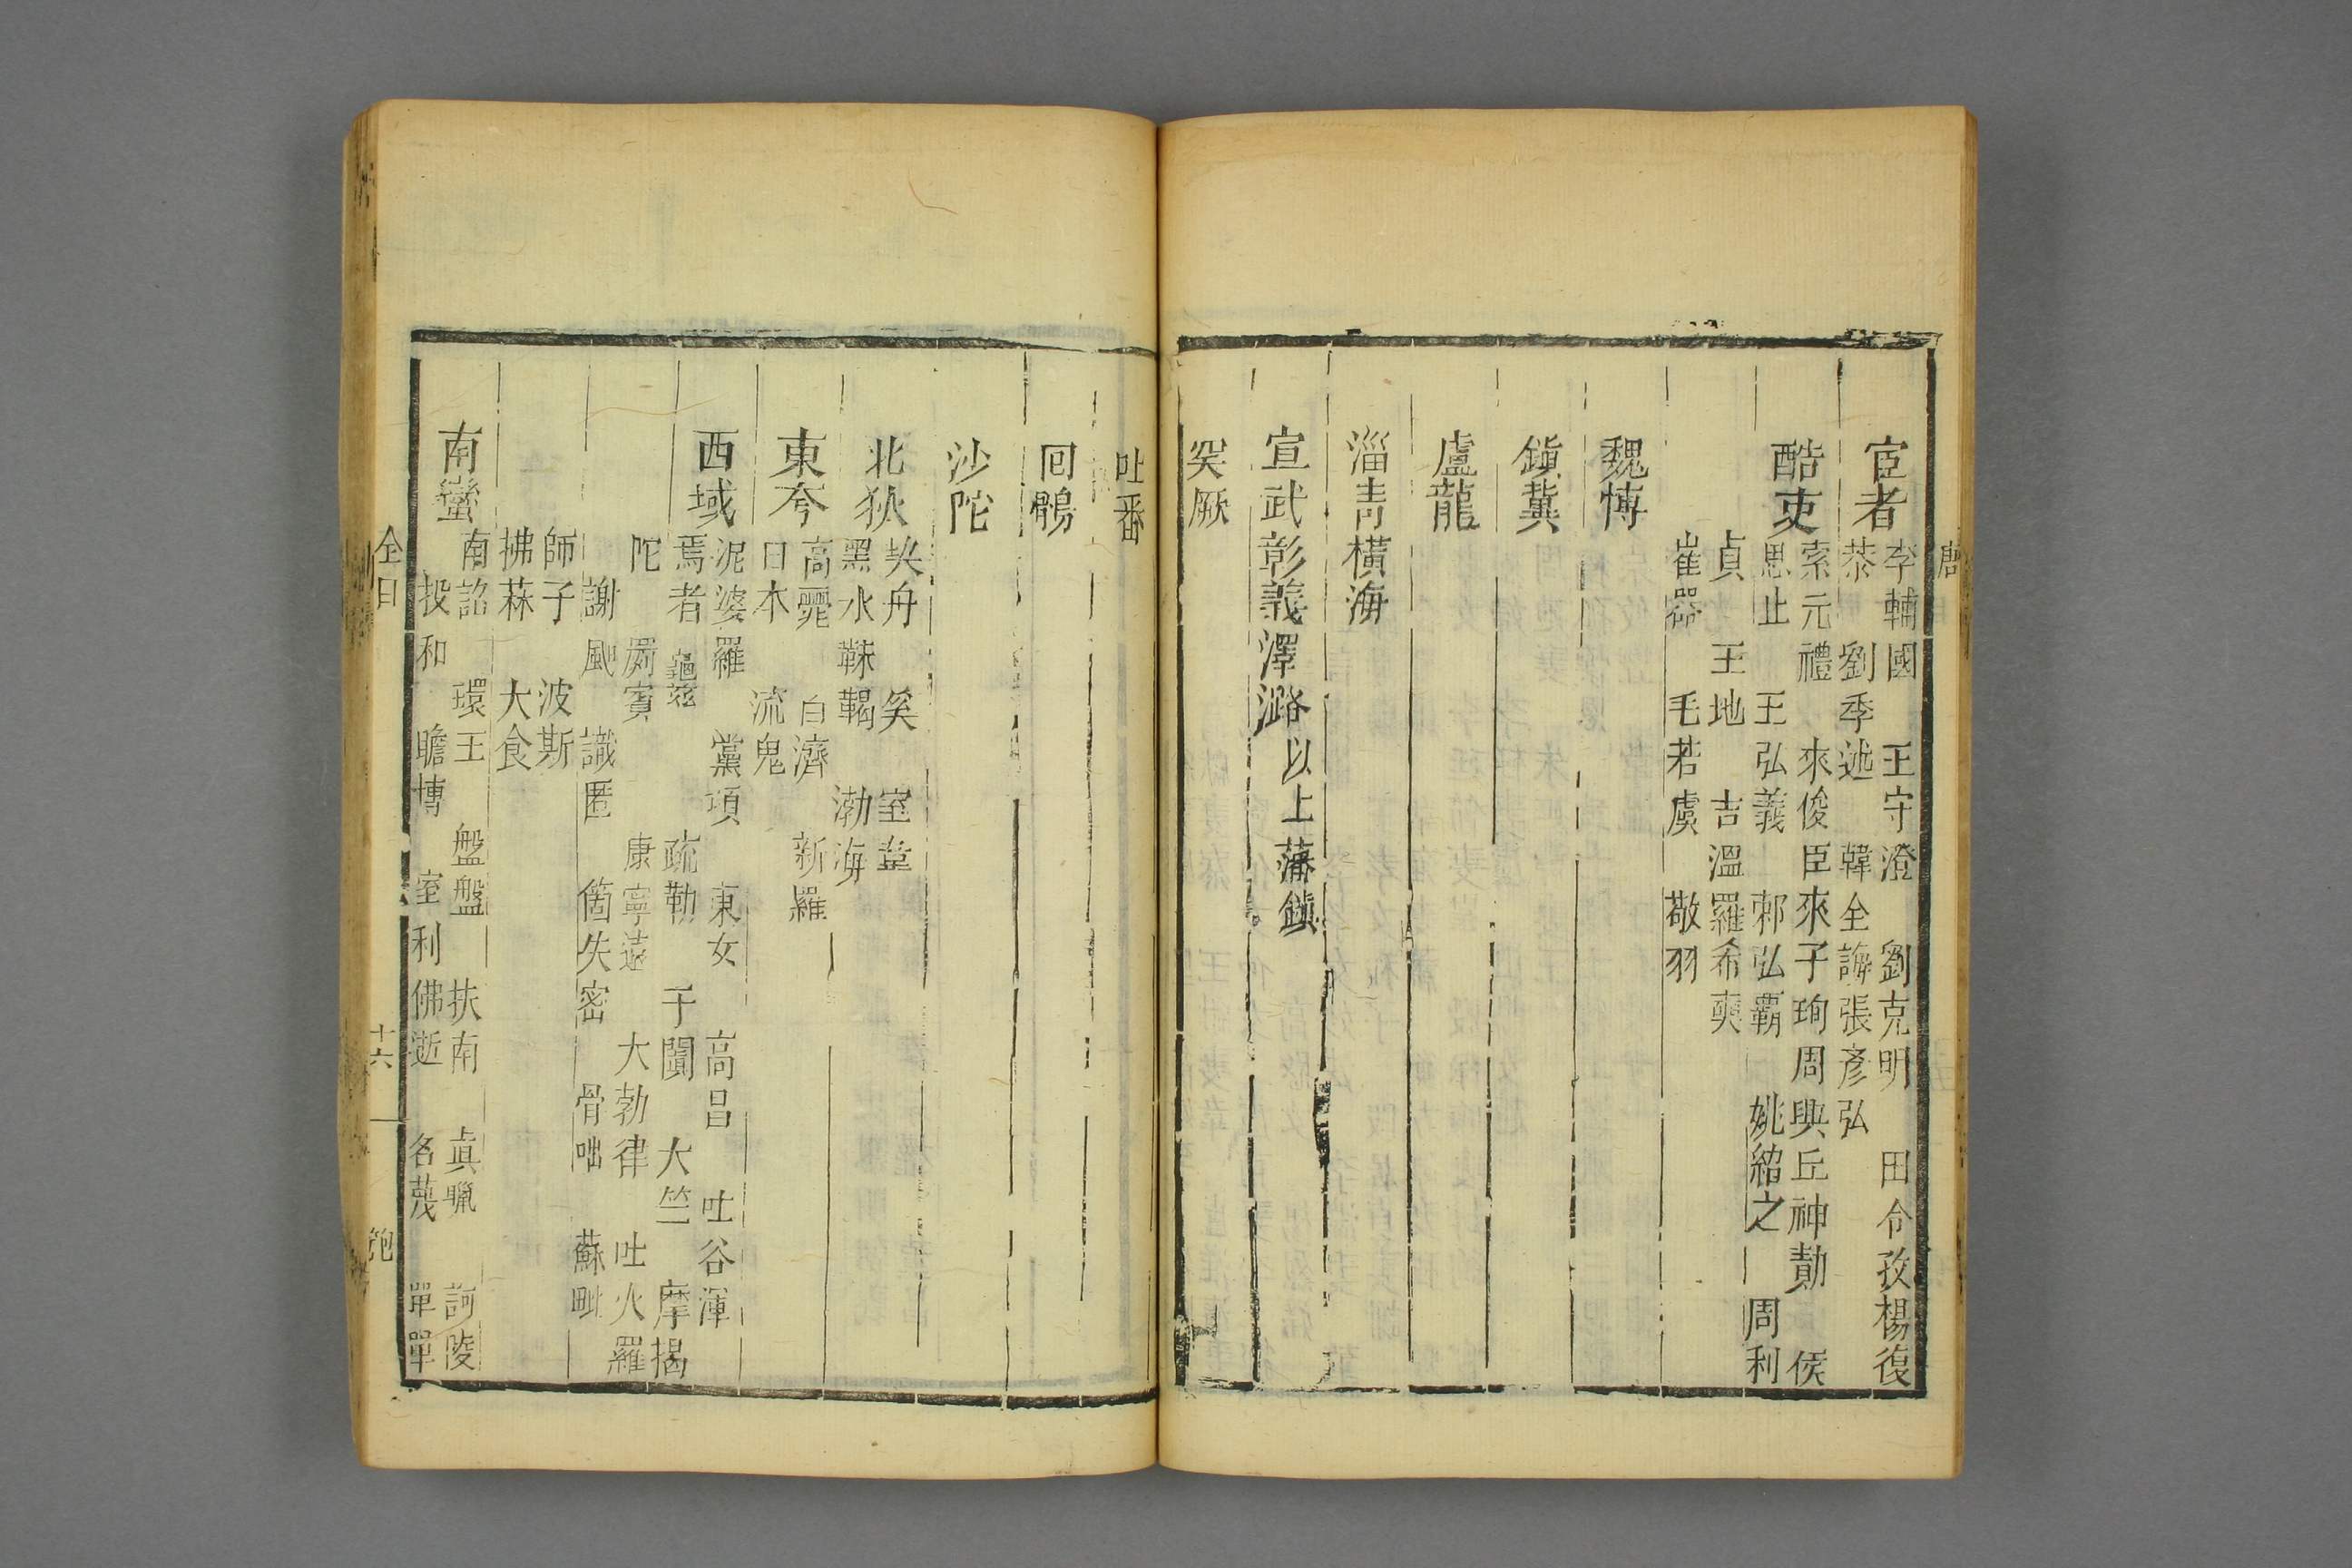 唐
宦者
李輔國 王守澄 劉克明 田令孜 楊復
恭 劉季述 韓全誨 張彥弘
酷吏
索元禮 來俊臣 來子珣 周興 丘神勣 侯
思止 王弘義 郭弘霸 姚紹之 周利
貞 王地 吉溫 羅希奭
崔器 毛若虞 敬羽
魏博
鎭冀
盧龍
淄青橫海
宣武彰義澤潞以上藩鎮
突厥
吐番
回鶻
沙陀
北狄
契丹 奚 室韋
黑水靺鞨 渤海
東夸
高麗 白濟 新羅
日本 流鬼
西域
泥婆羅 黨項 東女 高昌 吐谷渾
焉者 龜茲 疏勒 于闐 大竺 摩揭
陀 罽賓 康 寧遠 大勃律 吐火羅
謝䫻 識匿 箇失密 骨咄 蘇毗
師子 波斯
拂菻 大食
南蠻
南詔 環王 盤盤 扶南 眞臘 訶陵
投和 瞻博 室利佛逝 名蔑 單單
十六